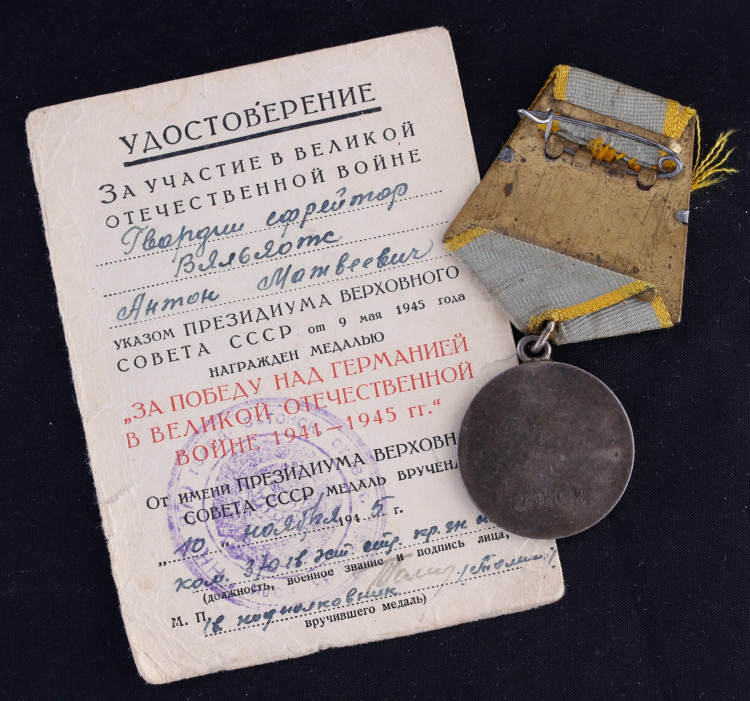 УДОСТОВЕРЕНИЕ
ЗА УЧАСТИЕ В ВЕЛИКОЙ
ОТЕЧЕСТВЕННОЙ ВОЙНЕ
Гвардии ефрейтор
Вяльяотс
Антон Матвеевич
УКАЗОМ ПРЕЗИДИУМА ВЕРХОВНОГО
СОВЕТА СССР от 9 мая 1945 года
НАГРАЖДЕН МЕДАЛЬЮ
„ЗА ПОБЕДУ НАД ГЕРМАНИЕЙ
В ВЕЛИКОЙ ОТЕЧЕСТВЕННОЙ
ВОЙНЕ 1941—1945 гг.“
От имени ПРЕЗИДИУМА ВЕРХОВН
СОВЕТА СССР МЕДАЛЬ ВРУЧЕНА
„10“ ноября 1945 г.
ком. гв. стр. кр. зн
(должность, военное звание и подпись лица,
М. П. гв подполковник
вручившего медаль)